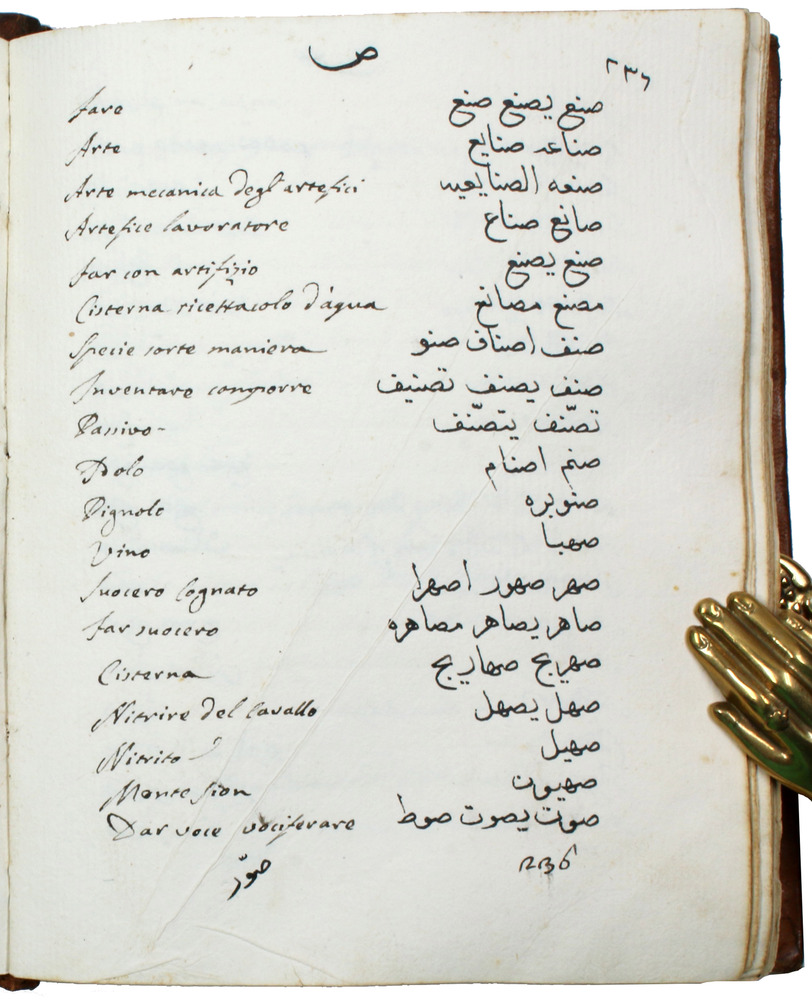 ص ٢٣٦
fare صنع يصنع صنع
Arte صناعه صنايع
Arte mecanica degl'artefici صنعه الصنايعيه
Artefice lavoratore صانع صناع
far con artifizio صنع يصنع
Cisterna ricettacolo d'àqua مصنع مصانع
Specie sorte maniera صنف اصناف صنو
Inventare comporre صنف يصنف تصنيف
Passivo- تصنّف يتصنّف
Idolo صنم اصنام
Pignolo صنوبره
Vino صهبا
Suocero Cognato صهر صهور اصهرا
far suocero صاهر يصاهر مصاهره
Cisterna صهريج صهاريج
Nitrire del Cavallo صهل يصهل
Nitrito صهيل
Monte Sion صهيون
Dar voce vociferare صوت يصوت صوط
صوّر 236